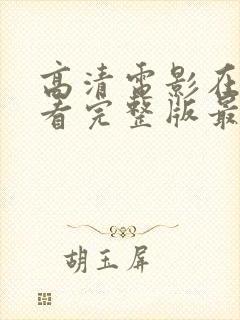 高清電影在
看完整版最
胡玉屏